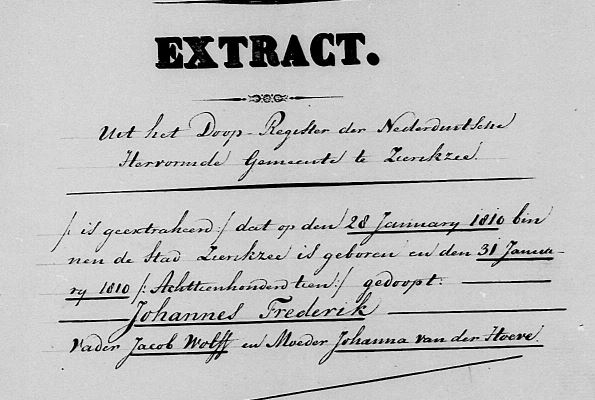 EXTRACT.
Uit het Doop-Register der Nederduitsche
Hervormde Gemeente te Zierikzee.
/: is geextraheerd :/ dat op den 28 January 1810 bin
nen de Stad Zierikzee is geboren en den 31 Janua-
ry 1810 /: Achttienhonderd tien :/ gedoopt:
Johannes Frederik
Vader Jacob Wolff en Moeder Johanna van der Hoeve.